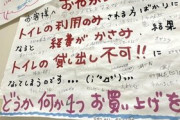 お客様へ
トイレの利用のみ されますばかりに
なると 経費がかさみ 結果
トイレの貸し出し不可!! に
なってしまうのです…(;´Д`)…
どうか何か1つお買い上げを